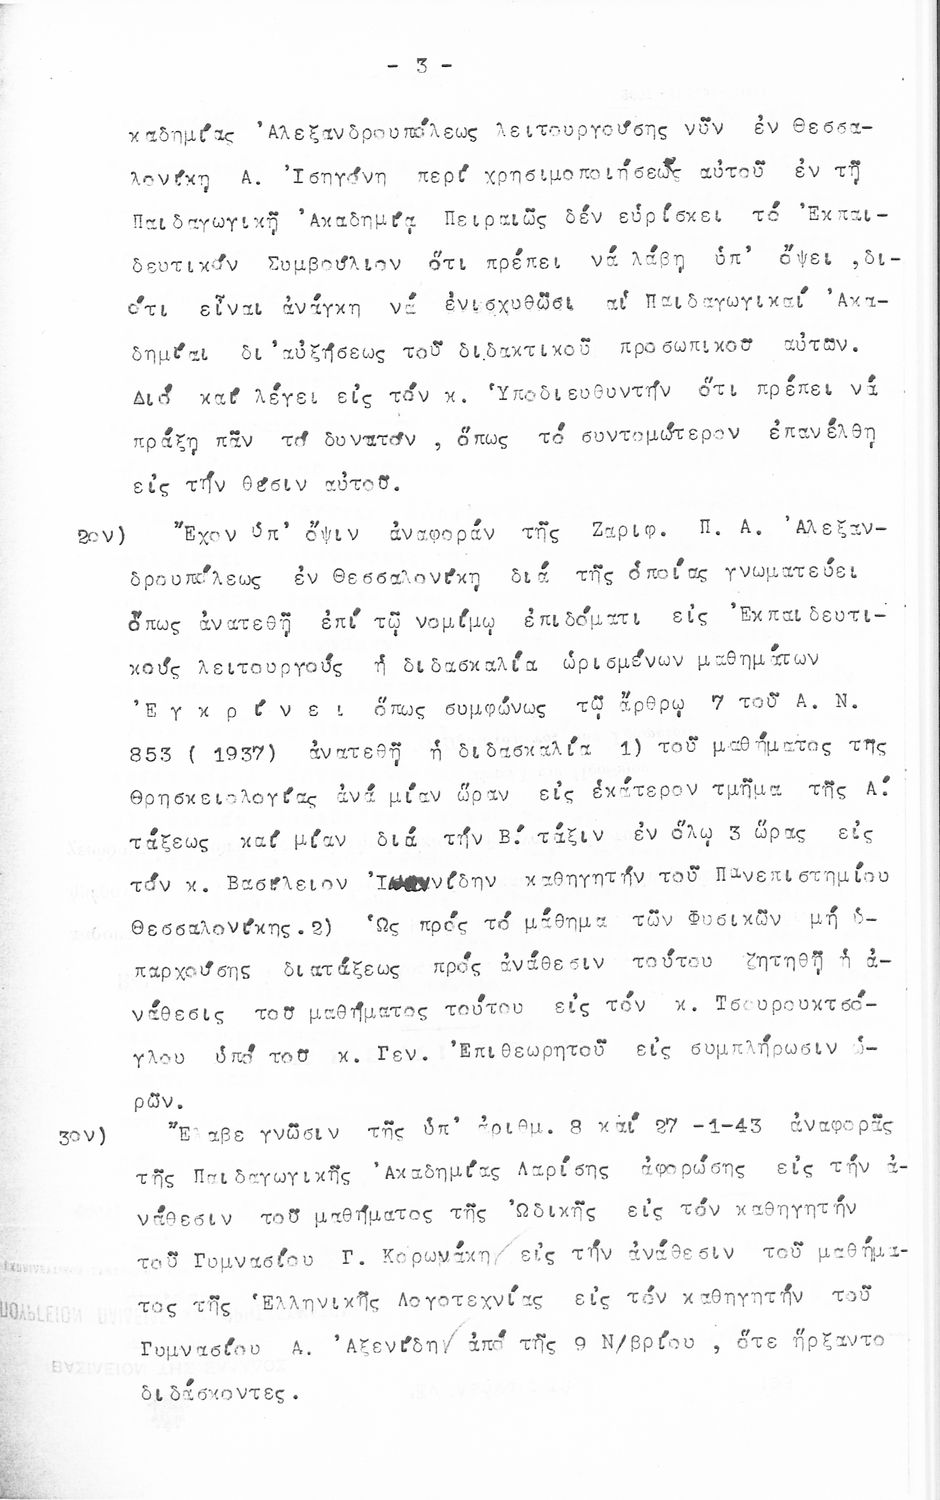 - 3 -
καδημίας Ἀλεξανδρουπόλεως λειτουργούσης νῦν ἐν Θεσσα-
λονίκη Α. Ἰσηγόνη περί χρησιμοποιήσεως αὐτοῦ ἐν τῇ
Παιδαγωγικῇ Ἀκαδημίᾳ Πειραιῶς δέν εὑρίσκει τό Ἐκπαι-
δευτικόν Συμβούλιον ὅτι πρέπει νά λάβη ὑπ' ὄψει ,δι-
ότι εἶναι ἀνάγκη νά ἐνισχυθῶσι αἱ Παιδαγωγικαί Ἀκα-
δημίαι δι'αὐξήσεως τοῦ διδακτικοῦ προσωπικοῦ αὐτῶν.
Διό καί λέγει εἰς τόν κ. Ὑποδιευθυντήν ὅτι πρέπει νά
πράξῃ πᾶν τό δυνατόν , ὅπως τό συντομώτερον ἐπανέλθῃ
εἰς τήν θέσιν αὐτοῦ.
2ον) Ἔχον ὑπ' ὄψιν ἀναφοράν τῆς Ζαριφ. Π. Α. Ἀλεξαν-
δρουπόλεως ἐν Θεσσαλονίκῃ διά τῆς ὁποίας γνωματεύει
ὅπως ἀνατεθῇ ἐπί τῷ νομίμῳ ἐπιδόματι εἰς Ἐκπαιδευτι-
κούς λειτουργούς ἡ διδασκαλία ὡρισμένων μαθημάτων
Ἐ γ κ ρ ί ν ε ι ὅπως συμφώνως τῷ ἄρθρῳ 7 τοῦ Α. Ν.
853 ( 1937) ἀνατεθῇ ἡ διδασκαλία 1) τοῦ μαθήματος τῆς
Θρησκειολογίας ἀνά μίαν ὥραν εἰς ἑκάτερον τμῆμα τῆς Α!
τάξεως καί μίαν διά τήν Β! τάξιν ἐν ὅλῳ 3 ὥρας εἰς
τόν κ. Βασίλειον Ἰωαννίδην καθηγητήν τοῦ Πανεπιστημίου
Θεσσαλονίκης.2) Ὡς πρός τό μάθημα τῶν Φυσικῶν μή ὑ-
παρχούσης διατάξεως πρός ἀνάθεσιν τούτου ζητηθῇ ἡ ἀ-
νάθεσις τοῦ μαθήματος τούτου εἰς τόν κ. Τσουρουκτσό-
γλου ὑπό τοῦ κ. Γεν. Ἐπιθεωρητοῦ εἰς συμπλήρωσιν ὡ-
ρῶν.
3ον) Ἔλαβε γνῶσιν τῆς ὑπ' ἀριθμ. 8 καί 27 -1-43 ἀναφορᾶς
τῆς Παιδαγωγικῆς Ἀκαδημίας Λαρίσης ἀφορώσης εἰς τήν ἀ-
νάθεσιν τοῦ μαθήματος τῆς Ὠδικῆς εἰς τόν καθηγητήν
τοῦ Γυμνασίου Γ. Κορωνάκη/ εἰς τήν ἀνάθεσιν τοῦ μαθήμα-
τος τῆς Ἑλληνικῆς Λογοτεχνίας εἰς τόν καθηγητήν τοῦ
Γυμνασίου Α. Ἀξενίδη/ ἀπό τῆς 9 Ν/βρίου , ὅτε ἤρξαντο
διδάσκοντες.